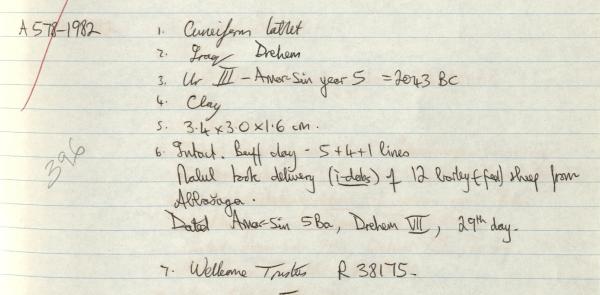 A 578-1982
1. Cuneiform tablet
2. Iraq Drehem
3. Ur III - Amar-Sin year 5 = 2043 BC
4. Clay
5. 3.4 x 3.0 x 1.6 cm.
6. Intact. Buff clay - 5+4+1 lines
Nalul took delivery (i-dab5) of 12 barley-(fed) sheep from
Abbašaga.
Dated Amar-Sin 5 Ba, Drehem VII, 29th day.
396
7. Wellcome Trustees R 38175.